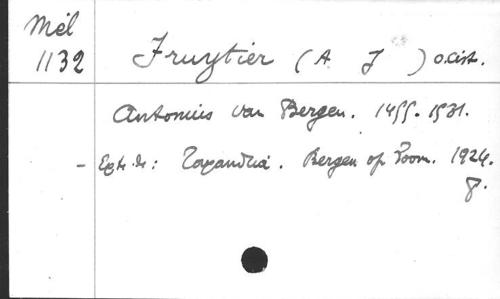 Mél
1132
Fruytier (A J) o.cist.
Antonius van Bergen. 1455-1531.
- Extr. de: Taxandria. Bergen op Zoom. 1924.
8.